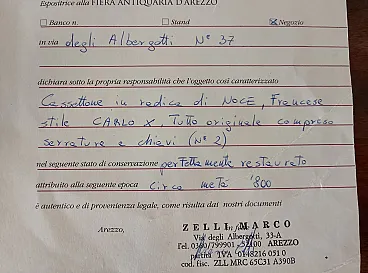 Espositore alla FIERA ANTIQUARIA D'AREZZO
Banco n. Stand Negozio
in via degli Albergotti N° 37
dichiara sotto la propria responsabilità che l'oggetto così caratterizzato
Cassettone in radica di NOCE, Francese
stile CARLO X, Tutto originale compreso
serrature e chiavi (N° 2)
nel seguente stato di conservazione perfettamente restaurato
attribuito alla seguente epoca Circa metà '800
è autentico e di provenienza legale, come risulta dai nostri documenti
Arezzo,
ZELLI MARCO
Via degli Albergotti, 33-A
Tel. 0360/799901 52100 AREZZO
partita IVA 0148216 051 0
cod. fisc. ZLL MRC 65C31 A390B